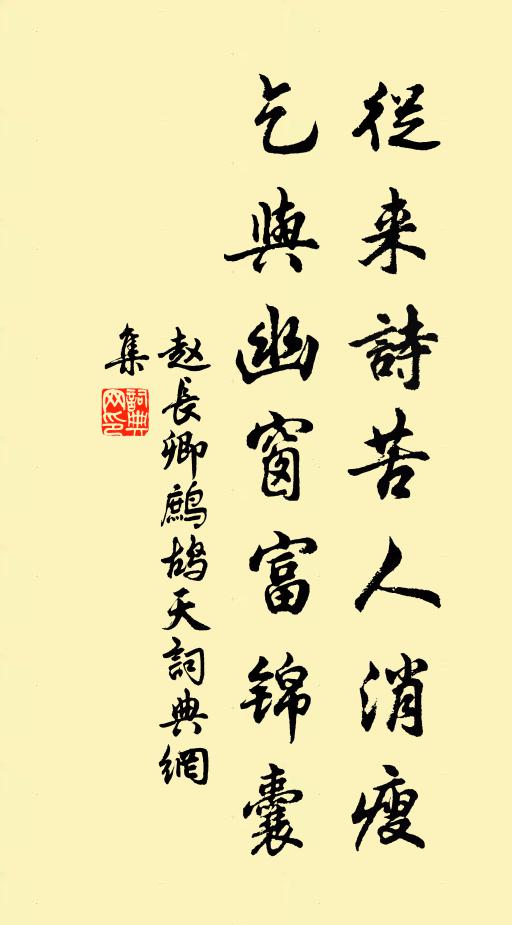 從来詩苦人消瘦
乞與幽窗富锦囊
赵長卿鹧鸪天詞典網
集
詞典網印